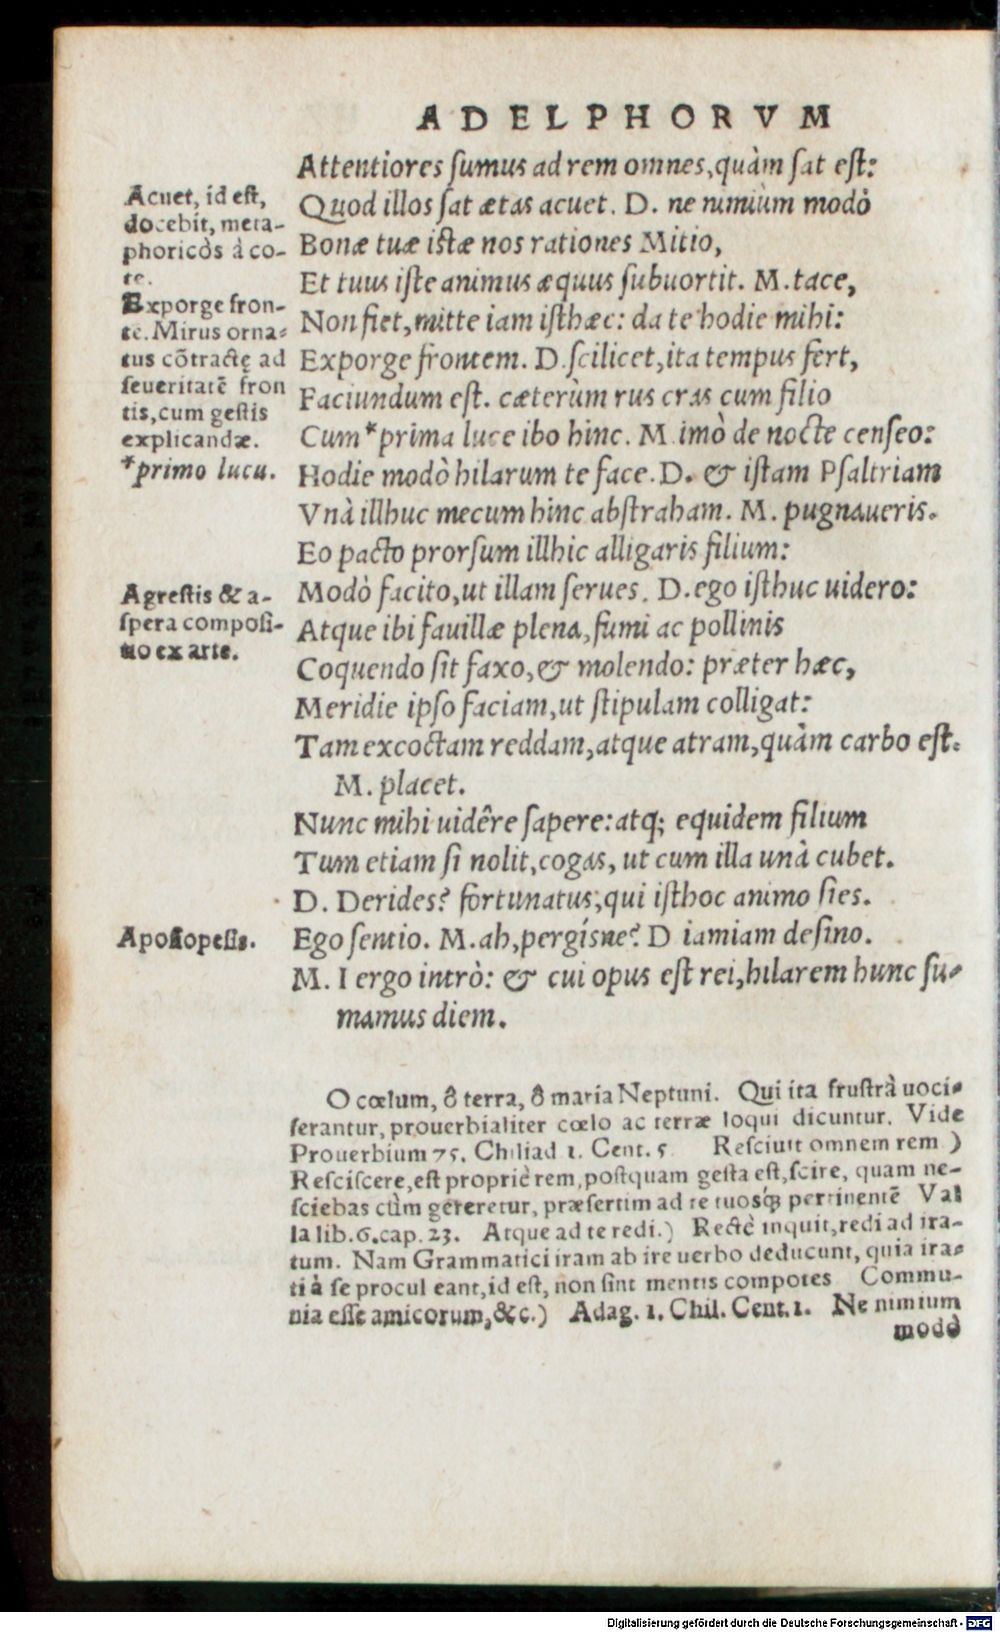 ADELPHORVM
Attentiores ſumus ad rem omnes, quàm ſat eſt:
Quod illos ſat ætas acuet. D. ne nimiùm modò
Bonæ tuæ iſtæ nos rationes Mitio,
Et tuus iſte animus æquus ſubuortit. M. tace,
Non fiet, mitte iam iſthæc: da te hodie mihi:
Exporge frontem. D. ſcilicet, ita tempus fert,
Faciundum eſt. cæterùm rus cras cum filio
Cum *prima luce ibo hinc. M imò de nocte cenſeo:
Hodie modò hilarum te face. D. & iſtam Pſaltriam
Vnà illhuc mecum hinc abſtraham. M. pugnaueris.
Eo pacto prorſum illhic alligaris filium:
Modò facito, ut illam ſerues. D. ego iſthuc uidero:
Atque ibi fauillæ plena, fumi ac pollinis
Coquendo ſit faxo, & molendo: præter hæc,
Meridie ipſo faciam, ut ſtipulam colligat:
Tam excoctam reddam, atque atram, quàm carbo eſt.
M. placet.
Nunc mihi uidêre ſapere: atq; equidem filium
Tum etiam ſi nolit, cogas, ut cum illa unà cubet.
D. Derides? fortunatus, qui iſthoc animo ſies.
Ego ſentio. M. ah, pergísne? D iamiam deſino.
M. I ergo intrò: & cui opus eſt rei, hilarem hunc ſu-
mamus diem.
Acuet, id eſt,
docebit, meta-
phoricωs à co-
te.
Exporge fron-
tē. Mirus orna-
tus cōtractę ad
ſeueritatē fron
tis, cum geſtis
explicandæ.
*primo lucu.
Agreſtis & a-
ſpera compoſi-
tio ex arte.
Apoſiopeſis.
O cœlum, ô terra, ô maria Neptuni. Qui ita fruſtrà uoci-
ferantur, prouerbialiter cœlo ac terræ loqui dicuntur. Vide
Prouerbium 75. Chiliad 1. Cent. 5 Reſciuit omnem rem )
Reſciſcere, eſt propriè rem, poſtquam geſta eſt, ſcire, quam ne-
ſciebas cùm gereretur, præſertim ad te tuosq́; pertinentē Val
la lib. 6. cap. 23. Atque ad te redi.) Rectè inquit, redi ad ira-
tum. Nam Grammatici iram ab ire uerbo deducunt, quia ira-
ti à ſe procul eant, id eſt, non ſint mentis compotes Commu-
nia eſſe amicorum, &c.) Adag. 1. Chil. Cent. 1. Ne nimium
modò
Digitalisierung gefördert durch die Deutsche Forschungsgemeinschaft - DFG